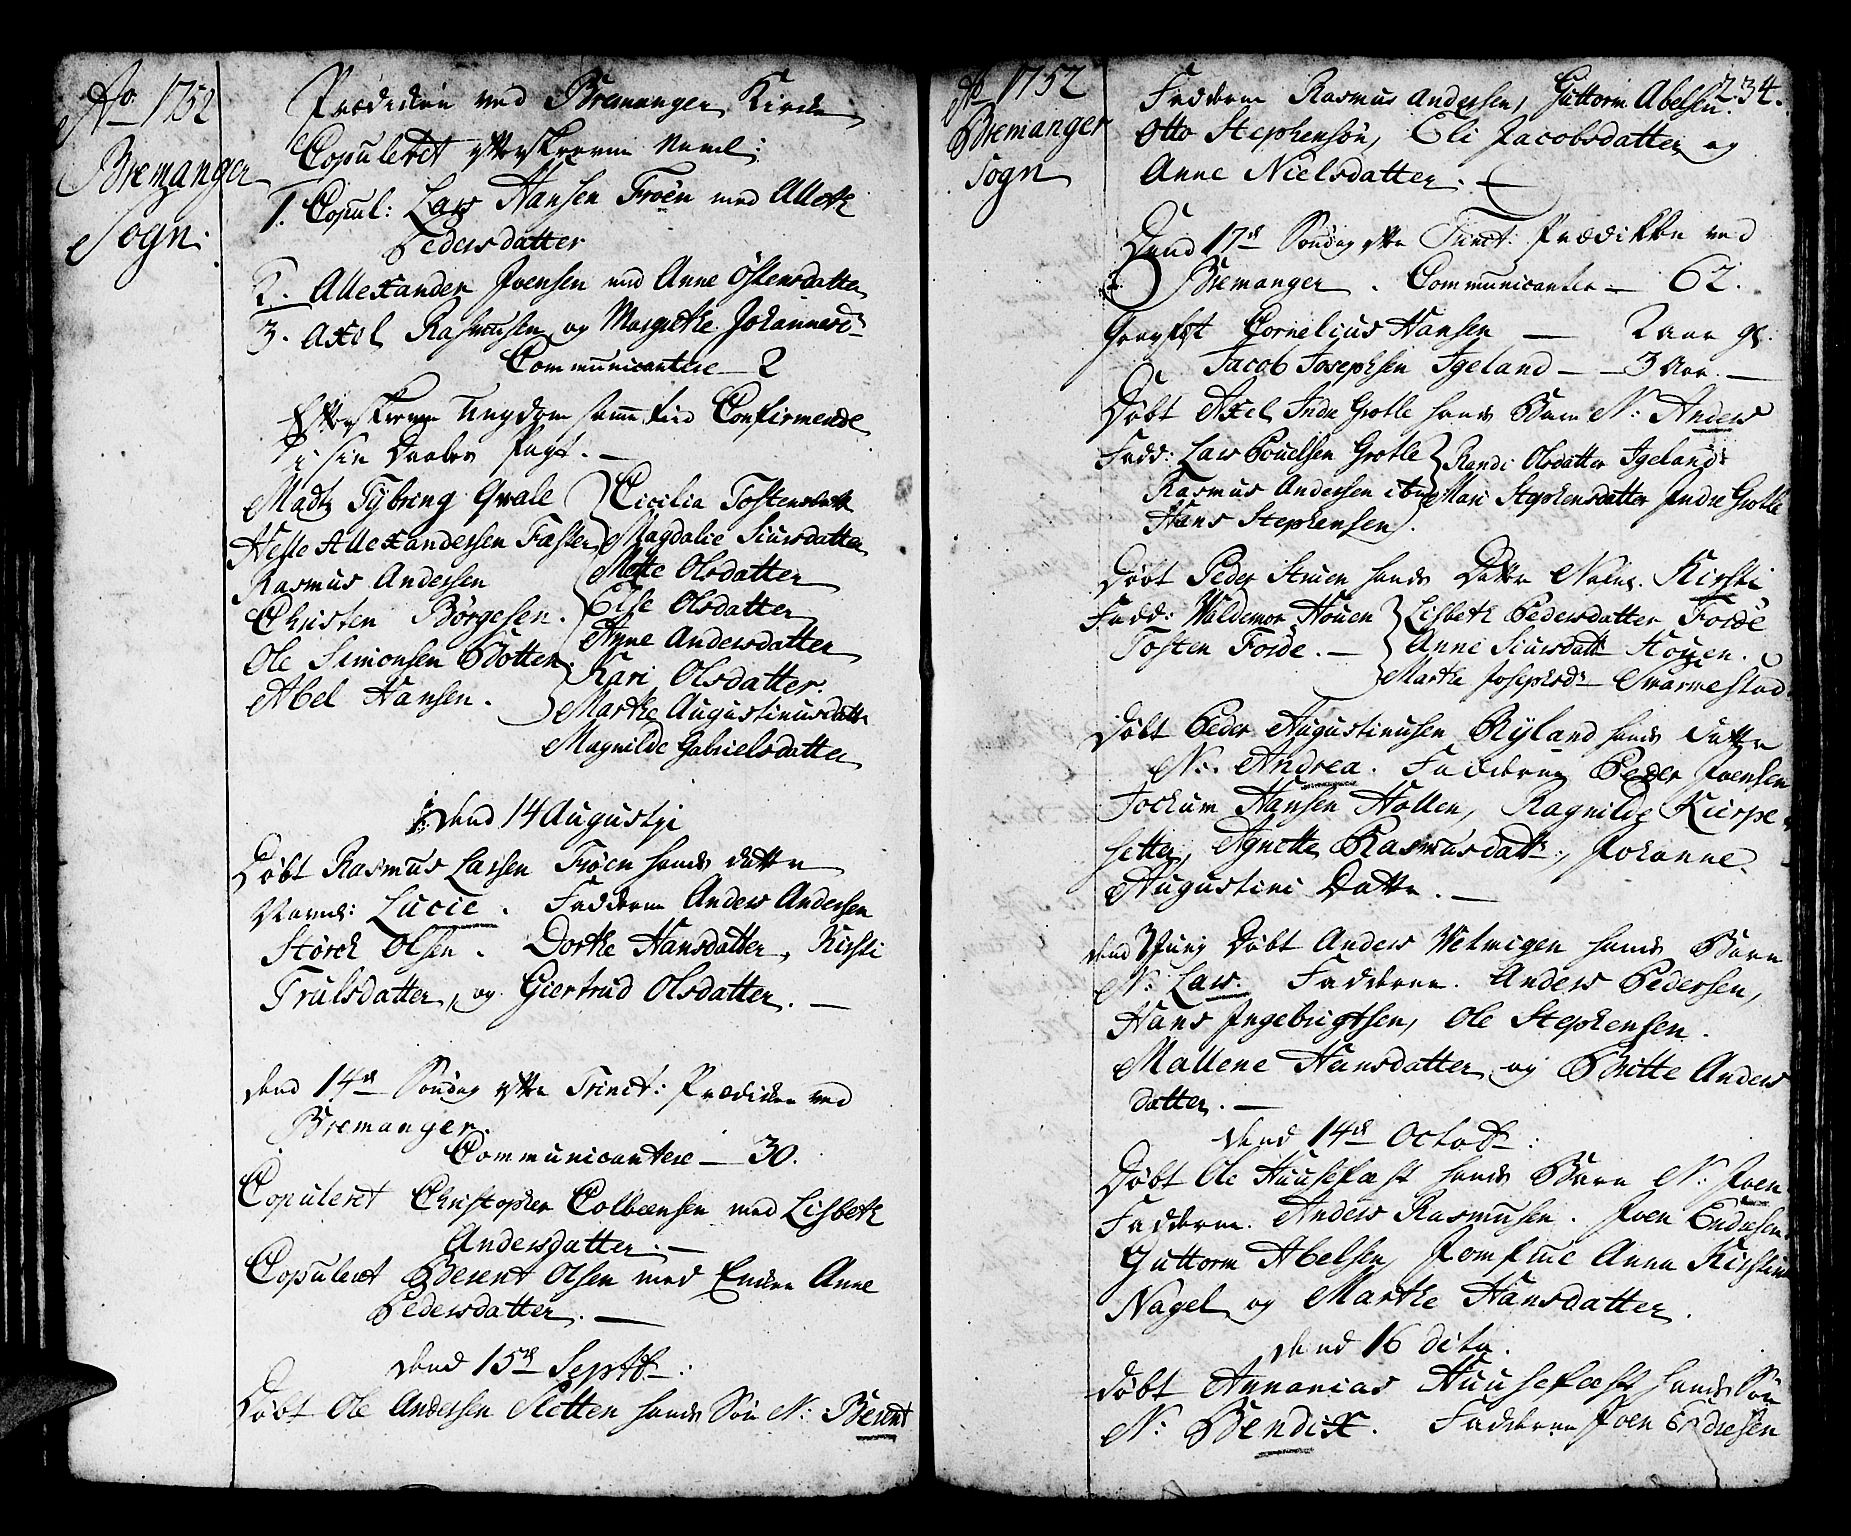 Ao 1752
Bremanger
Sogn.
Prædiken ved Bremanger Kirke
Copuleret efterskrevne Navnl:
1. Copul: Lars Hansen Froën med Alleth
Pedersdatter
2. Allexander Joensen med Anne Östensdatter
3. Axel Rasmusen og Margrethe Johannesd:
Communicantere — 2
Efterskrevne Ungdom Confirmerede
i sin Daabes Pagt. —
Madtz Tybring Qvale
Helle Allexandersen
Rasmus Andersen
Christen Börgesen.
Ole Simonsen Botten
Abel Hansen.
Cicilia Tostensdatt
Magdalie Siursdatter
Mette Olsdatter
Else Olsdatter
Anne Andersdatter
Kari Olsdatter.
Marthe Augustinusdatter
Magnilde Gabrielsdatter
Dend 14 Augustji
Döbt Rasmus Larsen Fröen hands datter
Navnl: Lucie. Fadderne Anders Andersen
Störck Olsen. Dorthe Hansdatter, Kirsti
Trulsdatter, og Giertrud Olsdatter. —
Dend 14de Söndag efter Trinit: Prædiken ved
Bremanger.
Communicantere — 30.
Copuleret Christopher Colbensen med Lisbeth
Andersdatter. —
Copuleret Besent Olsen med Enken Anne
Pedersdatter. —
Dend 15de Septbr:
Döbt Ole Andersen Sletten hands Sön N: Besent
Ao 1752
Bremanger
Sogn
234.
Fadderne Rasmus Andersen, Guttorm Abelsen.
Otto Stephensön, Eli Jacobsdatter og
Anne Nielsdatter. —
Dend 17de Söndag efter Trinit: Prædikken ved
Bremanger. Communicantere — 62.
Cornelius Hansen — 2 aar gl.
Jacob Josephsen Igeland — 3 Aar. —
Döbt Axel Indre Grotle hands Barn N: Anders
Fadd: Lars Pouelsen Grotle
Rasmus Andersen
Hans Stephensen.
Randi Olsdatter Igeland
Mari Stephensdatter Indre Grotle
Döbt Peder Struen hands Datter Nafnl. Kirsti
Fadd: Waldemor Houen
Tosten Förde. —
Lisbeth Pedersdatter Förde
Anne Siursdatt Houen.
Marthe Josephsd: Svarvestad
Döbt Peder Augustinusen Ryland hands datter
N: Andrea. Fadderne Peder Joensen
Jockum Hansen Hollen, Ragnilde Kierpe-
setter, Agnette Rasmusdatt:, Johanne
Augustini Datter. —
Döbt Anders Vetvigen hands Barn
N: Lars. Fadderne. Anders Pedersen,
Hans Ingebrigtsen, Ole Stephensen.
Mallene Hansdatter og Britte Anders
datter. —
Dend 14de Octobr:
Döbt Ole Huusefæst hands Barn N: Joen
Fadderne. Anders Rasmusen. Joen Endresen
Guttorm Abelsen, Jomfrue Anna Kirstine
Nagel og Marthe Hansdatter.
Dend 16 dito.
Döbt Annanias Huusefæst hands Sön
N: Bendix. Fadderne Joen Endresen